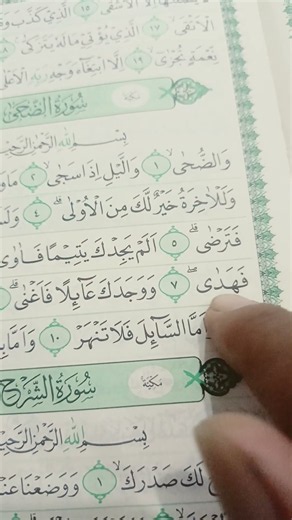 الْاَشْقَىۙ ١٥ الَّذِيْ كَذَّبَ
الْاَتْقَىۙ ١٧ الَّذِيْ يُؤْتِيْ مَالَهٗ يَتَزَكّٰىۚ ١٨
نِعْمَةٍ تُجْزٰىۙ ١٩ اِلَّا ابْتِغَاۤءَ وَجْهِ رَبِّهِ الْاَعْلٰىۚ
مكية سُوْرَةُ الضُّحٰى
بِسْمِ اللّٰهِ الرَّحْمٰنِ الرَّحِيْمِ
وَالضُّحٰىۙ ١ وَالَّيْلِ اِذَا سَجٰىۙ ٢ مَا
وَلَلْاٰخِرَةُ خَيْرٌ لَّكَ مِنَ الْاُوْلٰىۗ ٤
فَتَرْضٰىۗ ٥ اَلَمْ يَجِدْكَ يَتِيْمًا فَاٰوٰى
فَهَدٰىۖ ٧ وَوَجَدَكَ عَاۤىِٕلًا فَاَغْنٰىۗ
السَّاۤىِٕلَ فَلَا تَنْهَرْ ١٠ وَاَمَّا
مكية سُوْرَةُ الشَّرْحِ
بِسْمِ اللّٰهِ الرَّحْمٰنِ الرَّحِيْمِ
لَكَ صَدْرَكَۙ ١ وَوَضَعْنَا